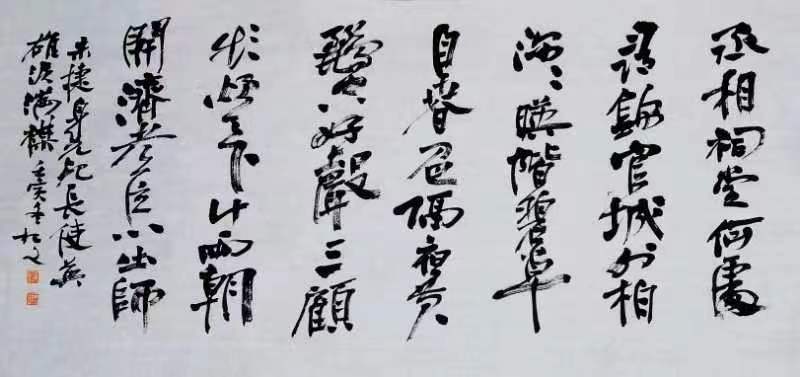 丞相祠堂何處
尋錦官城外柏
森〻映階碧草
自春色隔葉黃
鸝空好聲三顧
頻煩天下計兩朝
開濟老臣心出師
未捷身先死長使英
雄淚滿襟 壬寅